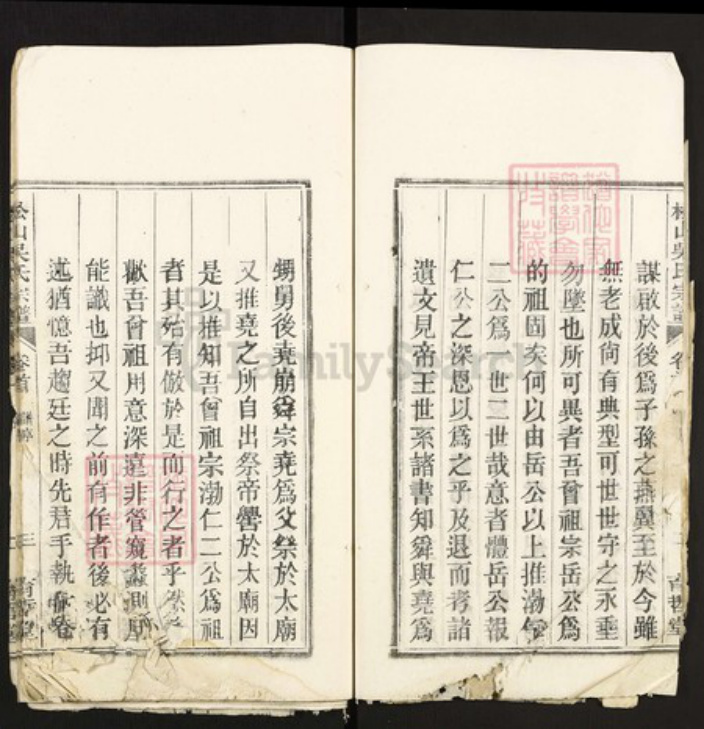 謀啟於後爲子孫之燕翼至於今雖
無老成尙有典型可世世守之永垂
勿墜也所可異者吾曾祖宗岳公爲
的祖固矣何以由岳公以上推渤
二公爲一世二世哉意者體岳公報
仁公之深恩以爲之乎及退而考諸
遺文見帝王世系諸書知舜與堯爲
甥舅後堯崩舜宗堯爲父祭於太廟
又推堯之所自出祭帝嚳於太廟因
是以推知吾曾祖宗渤仁二公爲祖
者其殆有倣於是而行之者乎然
歟吾曾祖用意深遠非管窺蠡測所
能識也抑又聞之前有作者後必有
述猶憶吾趨廷之時先君手執卷
松山吳氏宗譜
卷首
三
育哲堂
FamilySearch